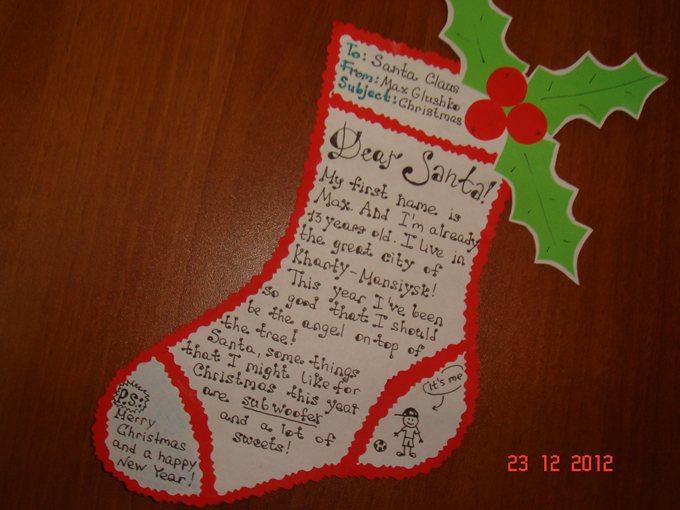 To: Santa Claus
From: Max Glushko
Subject: Christmas
Dear Santa!
My first name is
Max. And I'm already
13 years old. I live in
the great city of
Khanty-Mansiysk!
This year I've been
so good that I should
be the angel on top of
the tree!
Santa, some things
that I might like for
Christmas this year
are subwoofer
and a lot of
sweets!
It's me
P.S.:
Merry
Christmas
and a happy
New Year!
23 12 2012